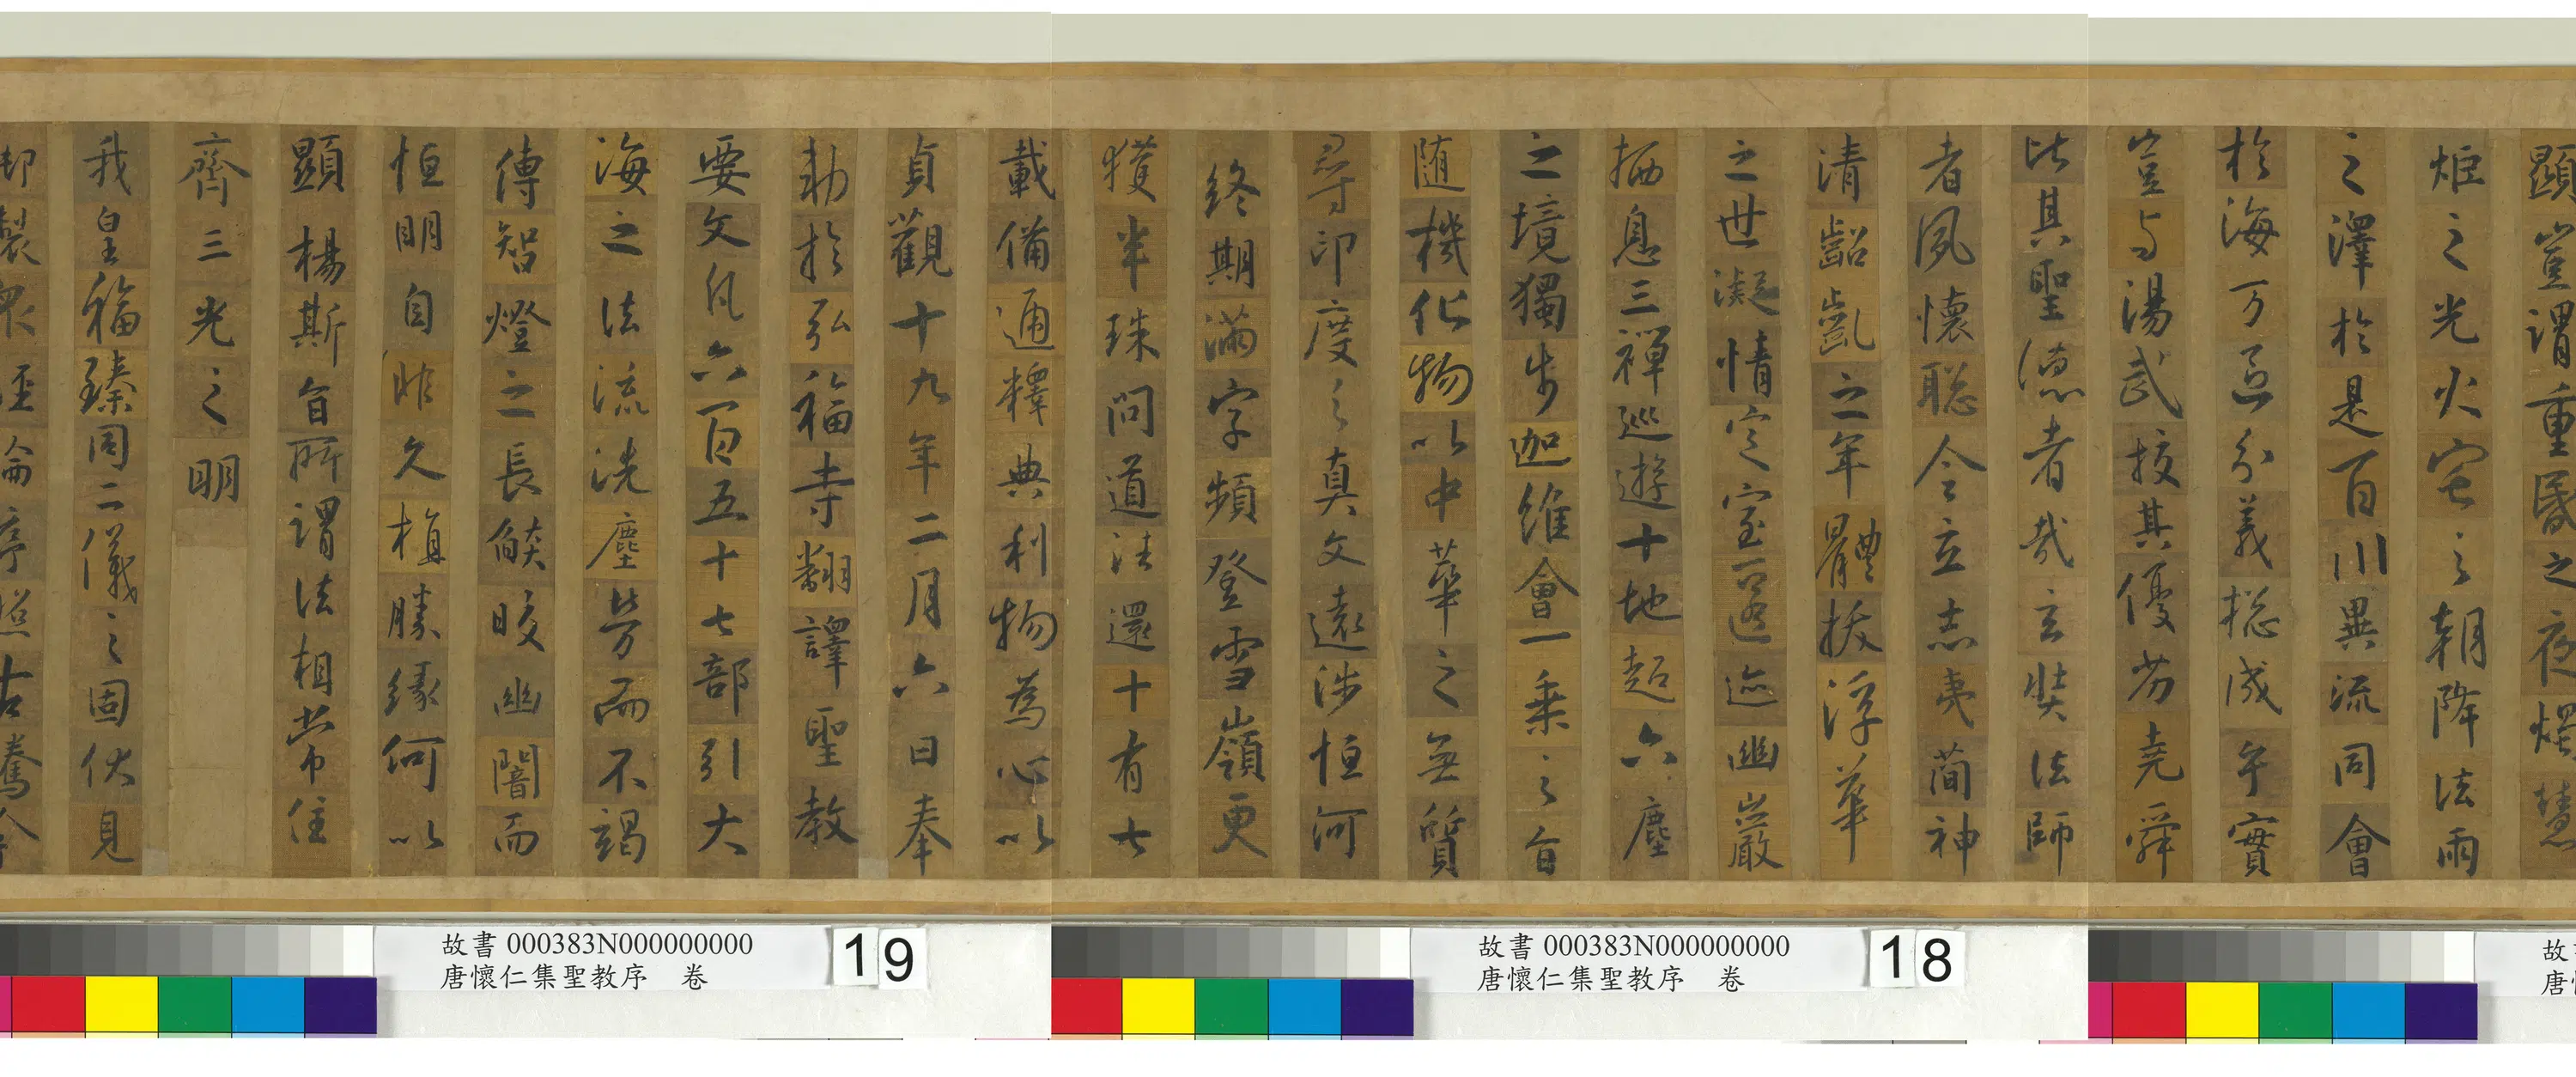 顯豈謂重昏之夜燭慧
炬之光火宅之朝降法雨
之澤於是百川異流同會
於海万區分義揔成乎實
豈与湯武挍其優劣堯舜
比其聖德者哉玄奘法師
者夙懷聡令立志夷簡神
清齠齔之年體拔浮華
之世凝情定室匿迹幽巖
栖息三禪巡遊十地超六塵
之境獨步迦維會一乘之旨
随機化物以中華之無質
尋印度之真文遠涉恒河
終期滿字頻登雪嶺更
獲半珠問道法還十有七
載備通釋典利物為心以
貞觀十九年二月六日奉
勅於弘福寺翻譯聖教
要文凡六百五十七部引大
海之法流洗塵勞而不竭
傳智燈之長焰皎幽闇而
恒明自非久植勝緣何以
顯揚斯旨所謂法相常住
齊三光之明
我皇福臻同二儀之固伏見
御製衆經論序照古騰今
故書 000383N000000000
唐懷仁集聖教序 卷
19
故書 000383N000000000
唐懷仁集聖教序 卷
18